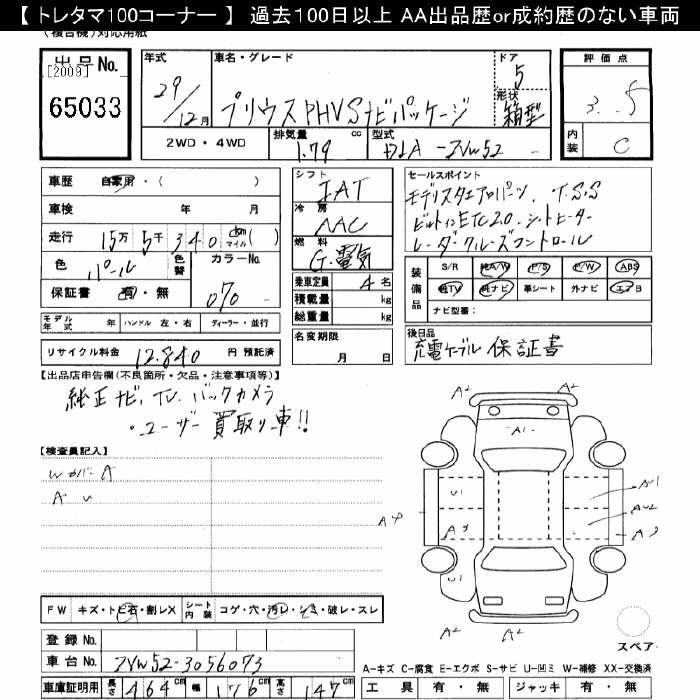 【 トレタマ100コーナー 】 過去100日以上 AA出品歴or成約歴のない車両
(複合機)対応用紙
出品No.
[2009]
65033
年式
29/12月
車名・グレード
プリウスPHV Sナビパッケージ
ドア
5
形状
箱型
評価点
3.5
内装
C
2WD・4WD
排気量
1.79
cc
型式
DLA-ZVW52
車歴 自家用・( )
車検 年 月
走行 15万5千340 km マイル( )
色 パール
色替
カラーNo.
070
保証書 有・無
シフト
IAT
冷房
AAC
燃料
G.電気
乗車定員 4名
積載量 kg
総重量 kg
セールスポイント
モデリスタエアロパーツ. T.S.S
ビルトインETC2.0. シートヒーター
レーダークルーズコントロール
装備品
S/R 純A/W P/S P/W ABS
純TV 純ナビ 革シート 外ナビ エアB
ナビ型番:
モデル年式 年 ハンドル 左・右 ディーラー・並行
リサイクル料金 12.840 円 預託済
名変期限
月 日
後日品
充電ケーブル 保証書
【出品店申告欄(不良箇所・欠品・注意事項等)】
純正ナビ. TV. バックカメラ
・ユーザー買取り車!!
【検査員記入】
Wカバー A
A U
A2 A2
A1
U1 AU1
A4 A3 AU2 A3
U1
A2 A2
スペア
FW キズ・トビ石・割レX シート内装 コゲ・穴・汚レ・シミ・破レ・スレ
登録No.
車台No. ZVW52-3056073
車庫証明用 長さ 464cm 幅 176cm 高さ 147cm
A-キズ C-腐食 E-エクボ S-サビ U-凹ミ W-補修 XX-交換済
工具 有・無 ジャッキ 有・無